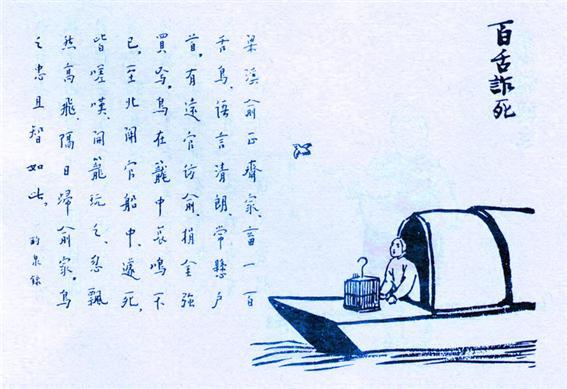 百舌詐死
梁溪俞正齋家,畜一百
舌鳥,語言清朗,常懸户
首,有達官訪俞,捐金強
買焉,鳥在籠中哀鳴不
已,至北關官船中,遂死,
皆嗟嘆,開籠玩之,忽飄
然高飛,隔日歸俞家。鳥
之忠且智如此。 酌泉錄